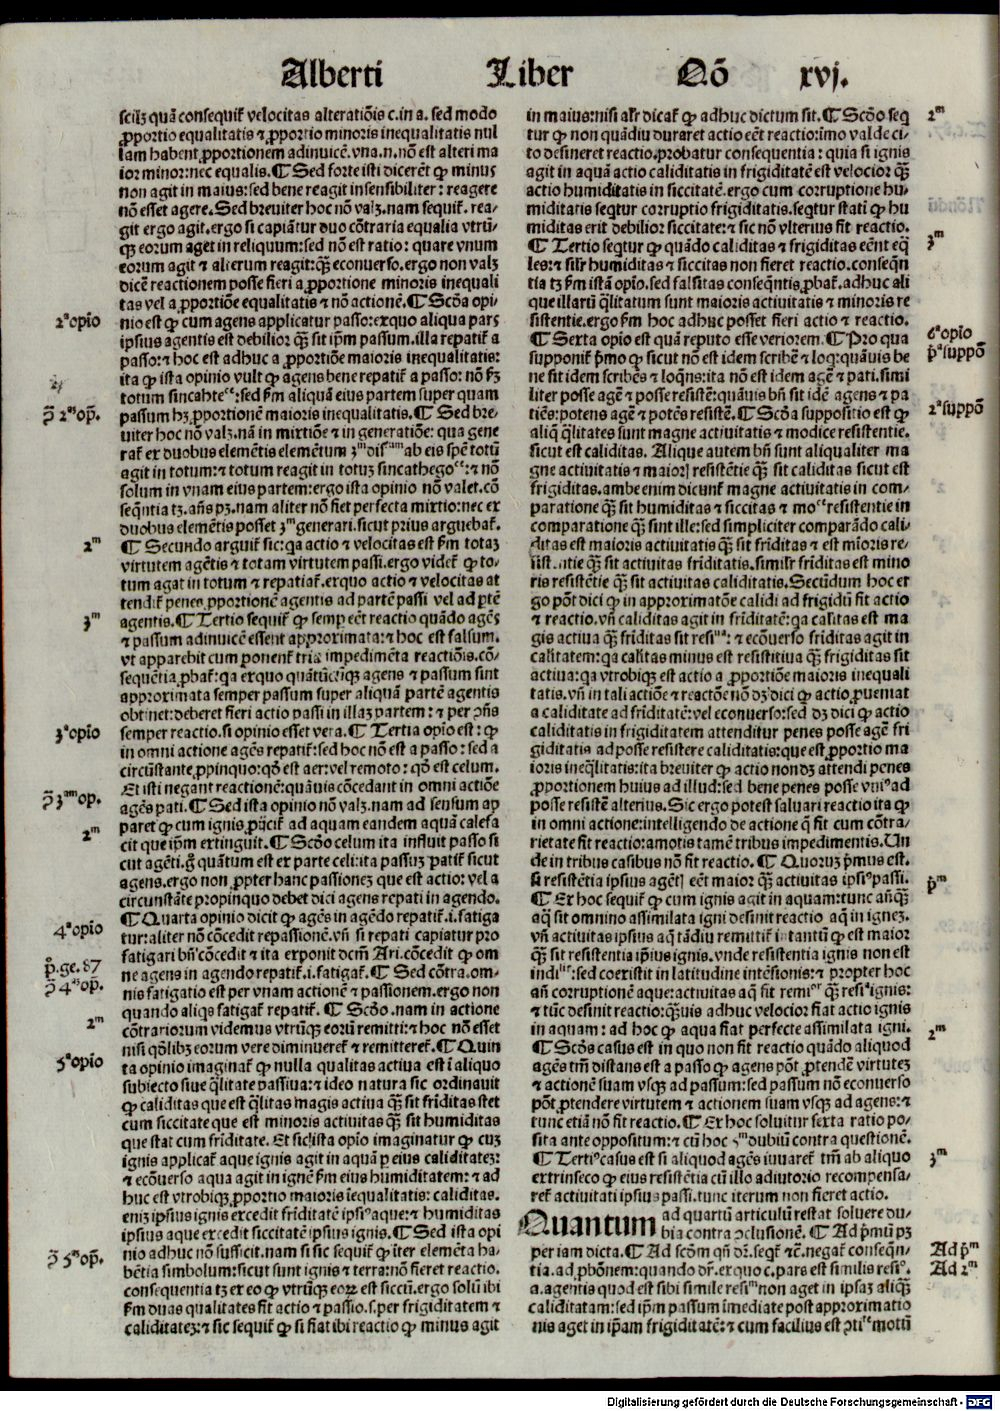 Alberti Liber Qō xvj.
scilꝫ quā consequit᷑ velocitas alteratiōis c. in a. sed modo
ꝓportio equalitatis ⁊ ꝓportio minoris inequalitatis nul
lam habent ꝓportionem adinuicē. vna. n. nō est alteri ma
ior minor: nec equalis. ¶ Sed forte isti dicerēt ꝙ minus
non agit in maius: sed bene reagit insensibiliter: reagere
nō esset agere. Sed breuiter hoc nō valꝫ. nam sequit᷑. rea-
git ergo agit. ergo si capiāt᷑ duo cōtraria equalia vtrū-
qꝫ eorum aget in reliquum: sed nō est ratio: quare vnum
eorum agit ⁊ alterum reagit: qꝫ̄ econuerso. ergo non valꝫ
dicē reactionem posse fieri a ꝓportione minoris inequali
tas vel a ꝓportiōe equalitatis ⁊ nō actionē. ¶ Scd̄a opi
2ᵃ opīo
nio est ꝙ cum agens applicatur passo: exquo aliqua pars
ipsius agentis est debilior qꝫ̄ sit ip̄m passum. illa repatit᷑ a
passo: ⁊ hoc est adhuc a ꝓportiōe maioris inequalitatis:
ita ꝙ ista opinio vult ꝙ agens bene repatit᷑ a passo: nō ẜm
totum sincathe: sed ẜm aliquā eius partem super quam
ꝯ̄ 2ᵃᵐ op̄.
passum hꝫ ꝓportionē maioris inequalitatis. ¶ Sed bre-
uiter hoc nō valꝫ. nā in mixtiōe ⁊ in generatiōe: qua gene
rat᷑ ex duobus elemētis elementum ab eis spē totū
agit in totum: ⁊ totum reagit in totuꝫ sincathego: ⁊ nō
solum in vnam eius partem: ergo ista opinio nō valet. cō
seqn̄tia tꝫ. an̄s pꝫ. nam aliter nō fiet perfecta mixtio: nec ex
duobus elemētis posset generari. sicut prius arguebat᷑.
2ᵐ
¶ Secundo arguit᷑ sic: qa actio ⁊ velocitas est ẜm totaꝫ
virtutem agētis ⁊ totam virtutem passi. ergo videt᷑ ꝙ to-
tum agat in totum ⁊ repatiat᷑. exquo actio ⁊ velocitas at
tendit᷑ penes ꝓportionē agentis ad partē passi vel ad ꝑtē
3ᵐ
agentis. ¶ Tertio sequit᷑ ꝙ semꝑ eēt reactio quādo agēs
⁊ passum adinuicē essent approximata: ⁊ hoc est falsum.
vt apparebit cum ponent᷑ tria impedimēta reactiōis. cō-
sequētia ꝓbat᷑: qa exquo quātūcūqꝫ agens ⁊ passum sunt
approximata semper passum super aliquā partē agentis
obtinet: deberet fieri actio passi in illaꝫ partem: ⁊ per ꝯn̄s
3ᵃ opīo
semper reactio. si opinio esset vera. ¶ Tertia opīo est: ꝙ
in omni actione agēs repatit᷑: sed hoc nō est a passo: sed a
circūstante ꝓpinquo: qd̄ est aer: vel remoto: qd̄ est celum.
Et isti negant reactionē: quāuis cōcedant in omni actiōe
ꝯ̄ 3ᵃᵐ op.
agēs pati. ¶ Sed ista opinio nō valꝫ. nam ad sensum ap
paret ꝙ cum ignis ꝓijcit᷑ ad aquam eandem aquā calefa
2ᵐ
cit que ip̄m extinguit. ¶ Scd̄o celum ita influit passo si
cut agēti. gͦ quātum est ex parte celi: ita passuꝫ patit᷑ sicut
agens. ergo non ꝓpter hanc passioneꝫ que est actio: vel a
circunstāte propinquo debet dici agens repati in agendo.
4ᵃ opīo
¶ Quarta opinio dicit ꝙ agēs in agēdo repatit᷑. i. fatiga
tur: aliter nō cōcedit repassionē. vn̄ si repati capiatur pro
p̊. ge. 87
fatigari bn̄ cōcedit ⁊ ita exponit dcm̄ Ari. cōcedit ꝙ om
ꝯ̄ 4ᵃᵐ op̄.
ne agens in agendo repatit᷑. i. fatigat᷑. ¶ Sed cōtra. om-
nis fatigatio est per vnam actionē ⁊ passionem. ergo non
2ᵐ
quando aliqs fatigat᷑ repatit᷑. ¶ Scd̄o. nam in actione
cōtrariorum videmus vtrūqꝫ eorū remitti: ⁊ hoc nō esset
nisi qd̄libꝫ eorum vere diminueret᷑ ⁊ remitteret᷑. ¶ Quin
5ᵃ opīo
ta opinio imaginat᷑ ꝙ nulla qualitas actiua est ī aliquo
subiecto siue q̄litate passiua: ⁊ ideo natura sic ordinauit
ꝙ caliditas que est q̄litas magis actiua qꝫ̄ sit frīditas stet
cum siccitate que est minoris actiuitas qꝫ̄ sit humiditas
que stat cum frīditate. Et sic ista opīo imaginatur ꝙ cuꝫ
ignis applicat᷑ aque ignis agit in aquā ꝑ eius caliditateꝫ:
⁊ ecōuerso aqua agit in ignē ẜm eius humiditatem: ⁊ ad
huc est vtrobiqꝫ ꝓportio maioris īequalitatis: caliditas.
enim ipsius ignis excedit frīditatē ipsiꝰ aque: ⁊ humiditas
ipsius aque excedit siccitatē ipsius ignis. ¶ Sed ista opi
ꝯ̄ 5ᵃᵐ op̄.
nio adhuc nō sufficit. nam si sic sequit᷑ ꝙ īter elemēta ha-
bētia simbolum: sicut sunt ignis ⁊ terra: nō fieret reactio.
consequentia tꝫ ex eo ꝙ vtrūqꝫ eoꝝ est siccū. ergo solū ibi
ẜm duas qualitates fit actio ⁊ passio. s. per frigiditatem ⁊
caliditateꝫ: ⁊ sic sequit᷑ ꝙ si fiat ibi reactio ꝙ minus agit
in maius: nisi alr̄ dicat᷑ ꝙ adhuc dictum sit. ¶ Scd̄o seq
2ᵐ
tur ꝙ non quādiu duraret actio eēt reactio: imo valde ci-
to desineret reactio. probatur consequentia: quia si ignis
agit in aquā actio caliditatis in frigiditatē est velocior qꝫ̄
actio humiditatis in siccitatē. ergo cum corruptione hu-
miditatis seqtur corruptio frigiditatis. seqtur statī ꝙ hu
miditas erit debilior: siccitate: ⁊ sic nō vlterius fit reactio.
¶ Tertio seqtur ꝙ quādo caliditas ⁊ frigiditas eēnt eq̄
3ᵐ
les: ⁊ silr̄ humiditas ⁊ siccitas non fieret reactio. conseqn̄
tia tꝫ ẜm istā opīo. sed falsitas conseqn̄tis ꝓbat᷑. adhuc ali
que illarū q̄litatum sunt maioris actiuitatis ⁊ minoris re
sistentie. ergo ẜm hoc adhuc posset fieri actio ⁊ reactio.
6ᵃ opīo
¶ Sexta opio est quā reputo esse veriorem. ¶ Pro qua
p̄ᵃ suppō
supponit᷑ p̄mo ꝙ sicut nō est idem scribē ⁊ loq: quāuis be
ne sit idem scribēs ⁊ loqn̄s: ita nō est idem agē ⁊ pati. simi
liter posse agē ⁊ posse resistē: quāuis bn̄ sit idē agens ⁊ pa
2ᵃ suppō
tiēs: potens agē ⁊ potēs resistē. ¶ Scd̄a suppositio est ꝙ
aliq̄ q̄litates sunt magne actiuitatis ⁊ modice resistentie.
sicut est caliditas. Alique autem bn̄ sunt aliqualiter ma
gne actiuitatis ⁊ maioris resistētie qꝫ̄ sit caliditas sicut est
frigiditas. ambe enim dicunt᷑ magne actiuitatis in com-
paratione qꝫ̄ sit humiditas ⁊ siccitas ⁊ mo resistentie in
comparatione qꝫ̄ sint ille: sed simpliciter comparādo cali-
ditas est maioris actiuitatis qꝫ̄ sit frīditas ⁊ est mīoris re-
sistentie qꝫ̄ sit actiuitas frīditatis. similr̄ frīditas est mino
ris resistētie qꝫ̄ sit actiuitas caliditatis. Secūdum hoc er
go pōt dici ꝙ in approximatōe calidi ad frigidū fit actio
⁊ reactio. vn̄ caliditas agit in frīditatē: qa calitas est ma
gis actiua qꝫ̄ frīditas sit resi: ⁊ ecōuerso frīditas agit in
calitatem: qa calitas minus est resistitiua qꝫ̄ frigiditas sit
actiua: qa vtrobiqꝫ est actio a ꝓportiōe maioris inequali
tatis. vn̄ in tali actiōe ⁊ reactōe nō dꝫ dici ꝙ actio ꝓueniat
a caliditate ad frīditatē: vel econuerso: sed dꝫ dici ꝙ actio
caliditatis in frigiditatem attenditur penes posse agē fri
giditatis ad posse resistere caliditatis: que est ꝓportio ma
ioris ineq̄litatis: ita breuiter ꝙ actio non dꝫ attendi penes
ꝓportionem huius ad illud: sed bene penes posse vniꝰ ad
posse resistē alterius. Sic ergo potest saluari reactio ita ꝙ
in omni actione: intelligendo de actione q̄ fit cum cōtra-
rietate fit reactio: amotis tamē tribus impedimentis. Un
de in tribus casibus nō fit reactio. ¶ Quoruꝫ p̄mus est.
p̄ᵐ
si resistētia ipsius agētis eēt maior qꝫ̄ actiuitas ipsiꝰ passi.
¶ Ex hoc sequit᷑ ꝙ cum ignis agit in aquam: tunc anqꝫ̄
aq̄ sit omnino assimilata igni desinit reactio aq̄ in igneꝫ.
vn̄ actiuitas ipsius aq̄ tādiu remittit᷑ ī tantū ꝙ est maior
qꝫ̄ sit resistentia ip̄ius ignis. vnde resistentia ignis non est
indi: sed coexistit in latitudine intēsionis: ⁊ propter hoc
an̄ corruptionē aque: actiuitas aq̄ fit remi qꝫ̄ resi ignis:
⁊ tūc desinit reactio: qꝫ̄uis adhuc velocior fiat actio ignis
2ᵐ
in aquam: ad hoc ꝙ aqua fiat perfecte assimilata igni.
¶ Scd̄s casus est in quo non fit reactio quādo aliquod
agēs tm̄ distans est a passo ꝙ agens pōt ꝓtendē virtuteꝫ
⁊ actionē suam vsqꝫ ad passum: sed passum nō econuerso
pōt ꝓtendere virtutem ⁊ actionem suam vsqꝫ ad agens: ⁊
tunc etiā nō fit reactio. ¶ Ex hoc soluitur sexta ratio po-
sita ante oppositum: ⁊ cū hoc dubiū contra questionē.
3ᵐ
¶ Tertiꝰ casus est si aliquod agēs iuuaret᷑ tm̄ ab aliquo
extrinseco ꝙ eius resistētia cū illo adiutorio recompensa-
ret᷑ actiuitati ipsius passi. tunc iterum non fieret actio.
Quantum ad quartū articulū restat soluere du-
bia contra ꝯclusionē. ¶ Ad p̄mū pꝫ
Ad p̄ᵐ
per iam dicta. ¶ Ad scd̄m qn̄ dr̄. seqt᷑ ⁊c̄. negat᷑ conseqn̄-
Ad 2ᵐ
tia. ad ꝓbōnem: quando dr̄. ex quo c. pars est similis resi.
a. agentis quod est sibi simile resi non aget in ipsaꝫ aliqꝫ̄
caliditatam: sed ip̄m passum īmediate post approximatio
nis aget in ip̄am frigiditatē: ⁊ cum facilius est ꝯti motū
Digitalisierung gefördert durch die Deutsche Forschungsgemeinschaft - DFG